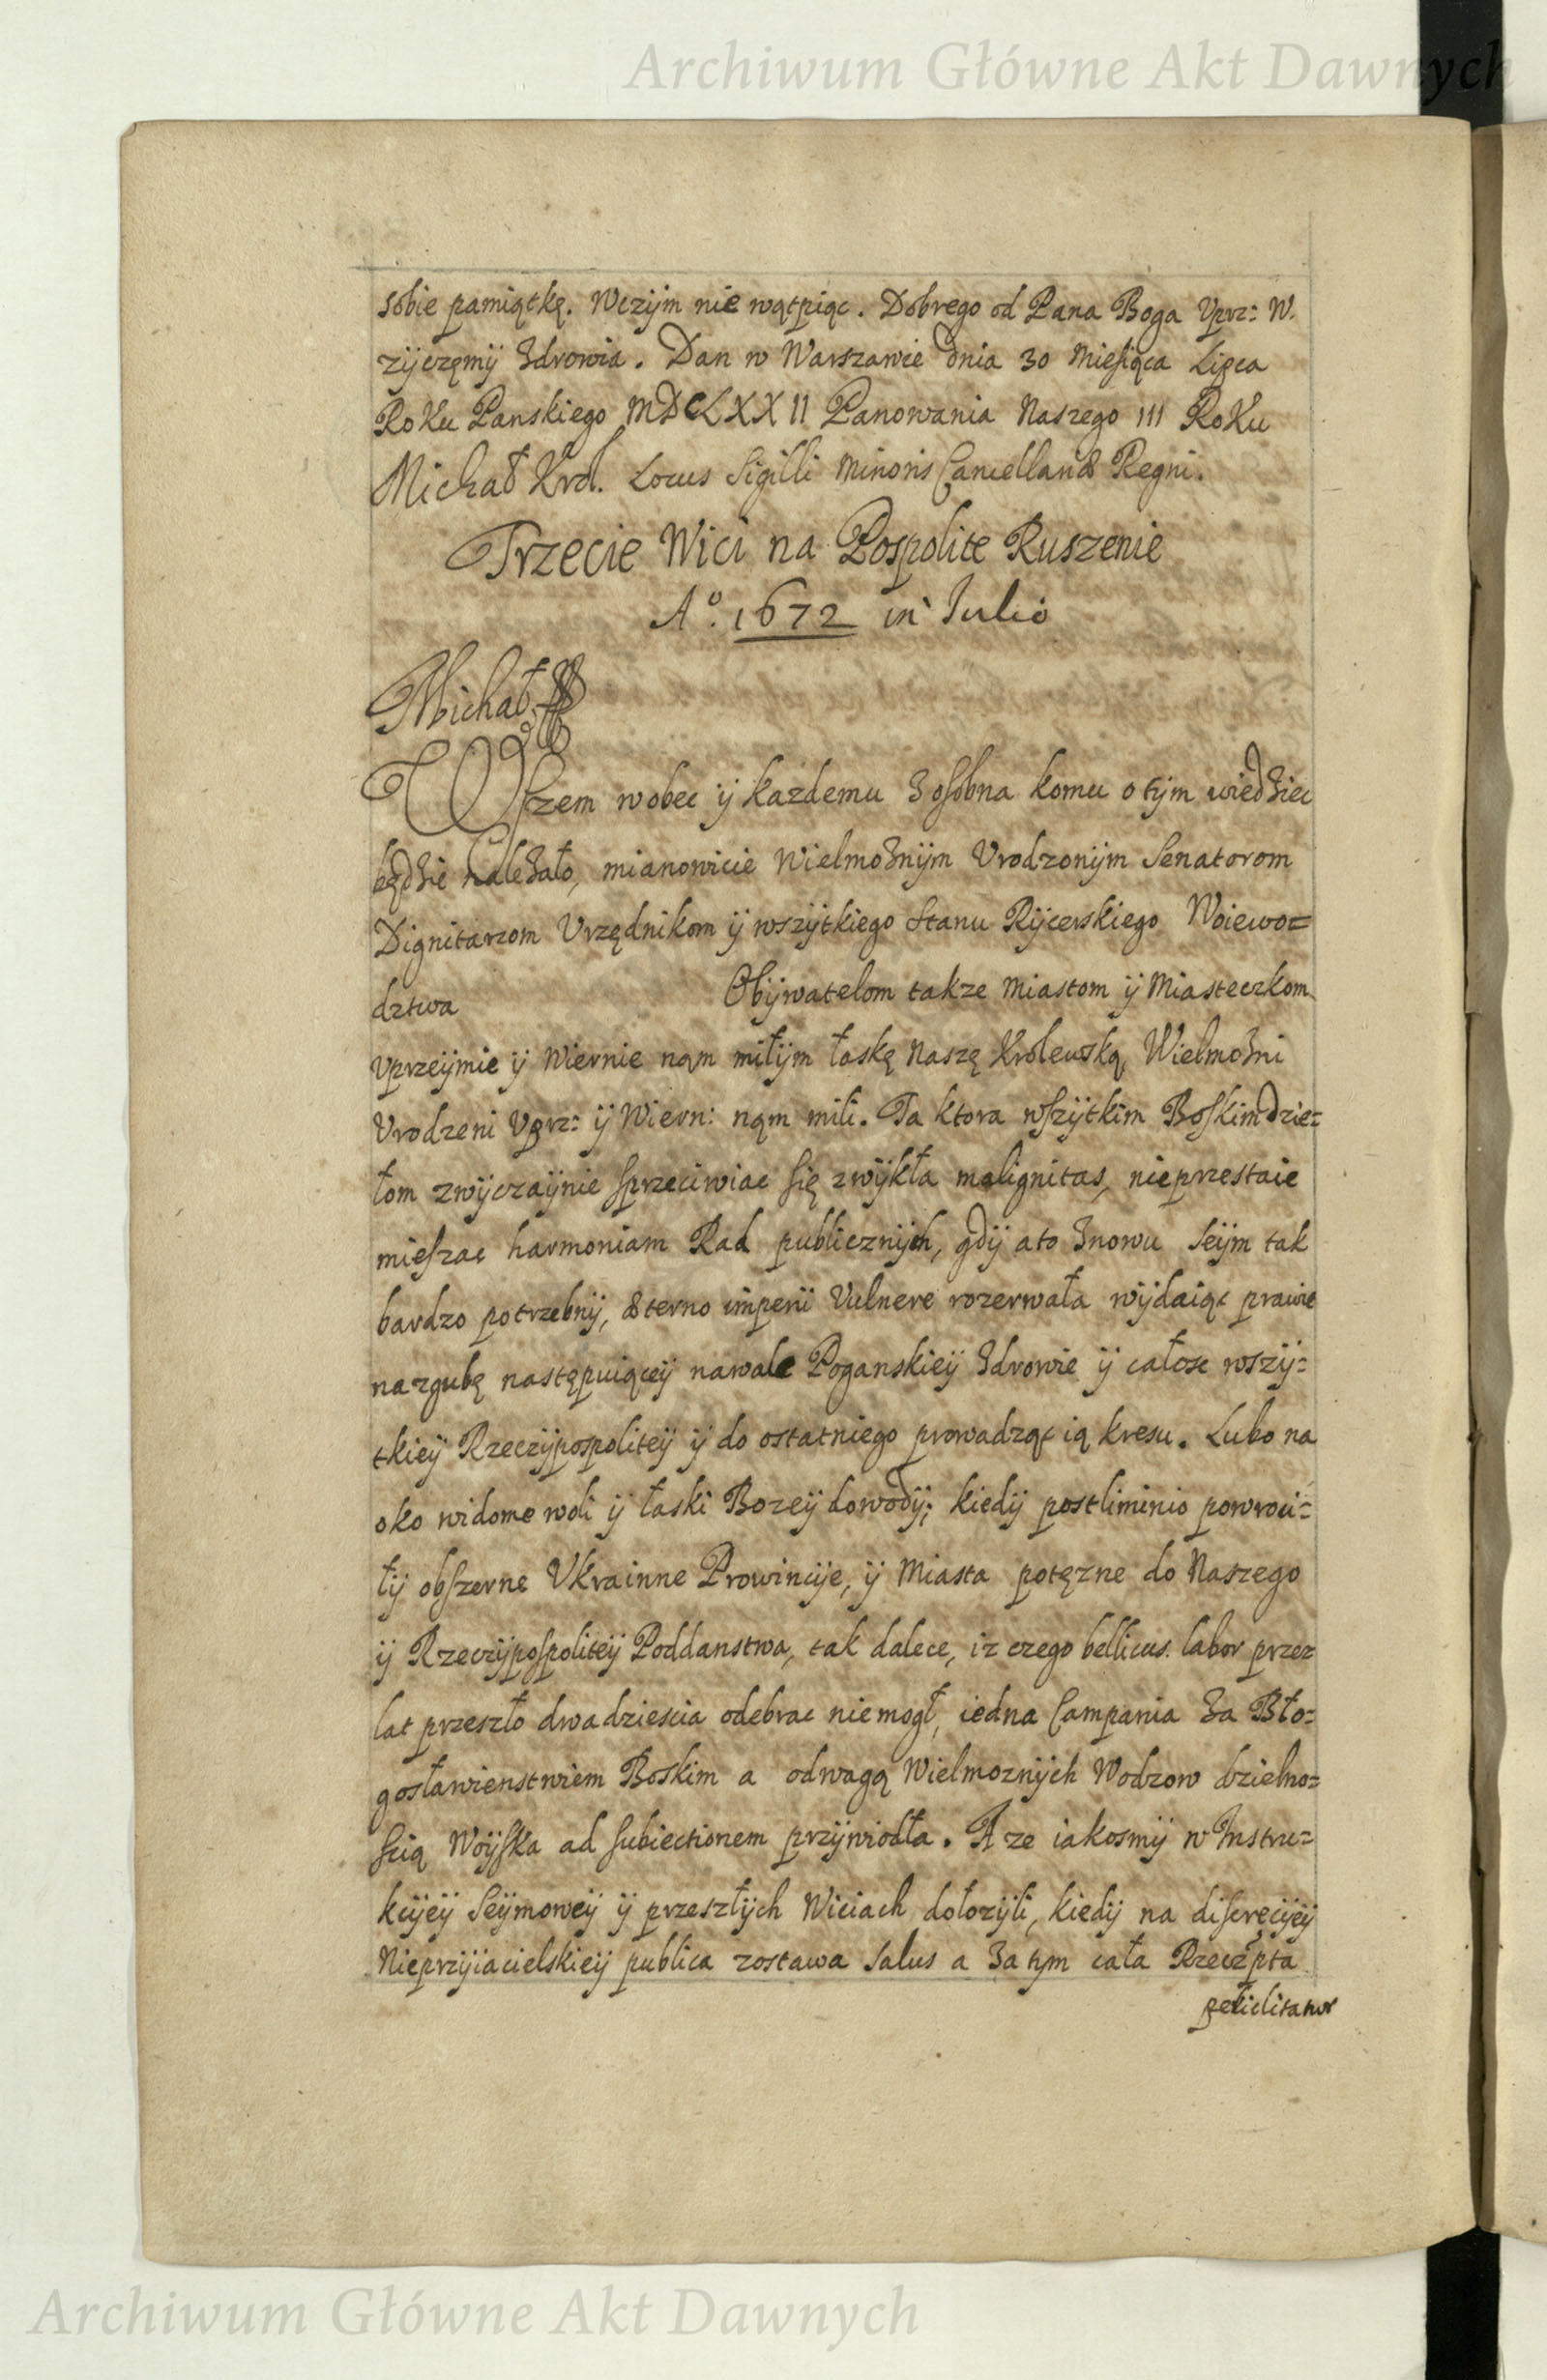 Archiwum Główne Akt Dawnych
sobie pamiątkę. Wczÿm nie wątpiąc. Dobrego od Pana Boga Vprz: W.
zÿczęmÿ Zdrowia. Dan w Warszawie dnia 30 Miesiąca Lipca
Roku Panskiego MDCLXXII Panowania Naszego III Roku
Michał Krol. Locus Sigilli Minoris Cancellariæ Regni.
Trzecie Wici na Pospolite Ruszenie
Aº. 1672 in Iulio
Michał
Wszem wobec ÿ kazdemu Zosobna komu o tÿm wiedziec
będzie nalezało, mianowicie Wielmoznÿm Vrodzonÿm Senatorom
Dignitarzom Vrzędnikom ÿ wszÿtkiego Stanu Rÿcerskiego Woiewo=
dztwa Obÿwatelom takze Miastom ÿ Miasteczkom
Vprzeÿmie ÿ Wiernie nąm miłÿm łaskę Naszę Krolewską, Wielmozni
Vrodzeni Vprz: ÿ Wiern: nąm mili. Ta ktora wszÿtkim Boskim dzie=
łom zwÿczaÿnie sprzeciwiac się zwÿkła malignitas, nieprzestaie
mieszac harmoniam Rad publicznÿch, gdÿ a to Znowu Seÿm tak
bardzo potrzebnÿ, æterno imperii Vulnere rozerwała wÿdaiąc prawie
na zgubę następuiąceÿ nawale Poganskieÿ Zdrowie ÿ całosc wszÿ=
tkieÿ Rzeczÿpospoliteÿ ÿ do ostatniego prowadząc ią kresu. Lubo na
oko widome woli ÿ łaski Bozeÿ dowodÿ; kiedÿ postliminio powroci=
łÿ obszerne Vkrainne Prowincÿe, ÿ Miasta potęzne do Naszego
ÿ Rzeczÿpospoliteÿ Poddanstwa, tak dalece, iz czego bellicus labor przez
lat przeszło dwadziescia odebrac niemogł, iedna Campania Za Bło=
gosławienstwiem Boskim a odwagą Wielmoznÿch Wodzow dzielno=
scią Woÿska ad subiectionem przÿwiodła. A ze iakosmÿ w Instru=
kcÿeÿ Seÿmoweÿ ÿ przeszłÿch Wiciach dołozÿli, kiedÿ na discrecÿeÿ
Nieprzÿiacielskieÿ publica zostawa Salus a Zatym cała Rzeczpta
periclitatur
Archiwum Główne Akt Dawnych